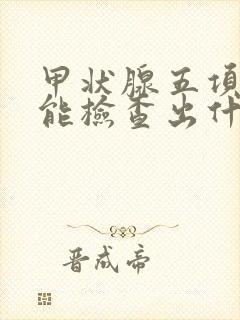 甲状腺五项
能檢查出什
晋成帝